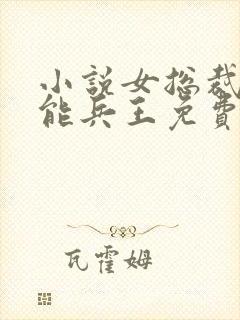 小説女总裁
能兵王免費
瓦霍姆